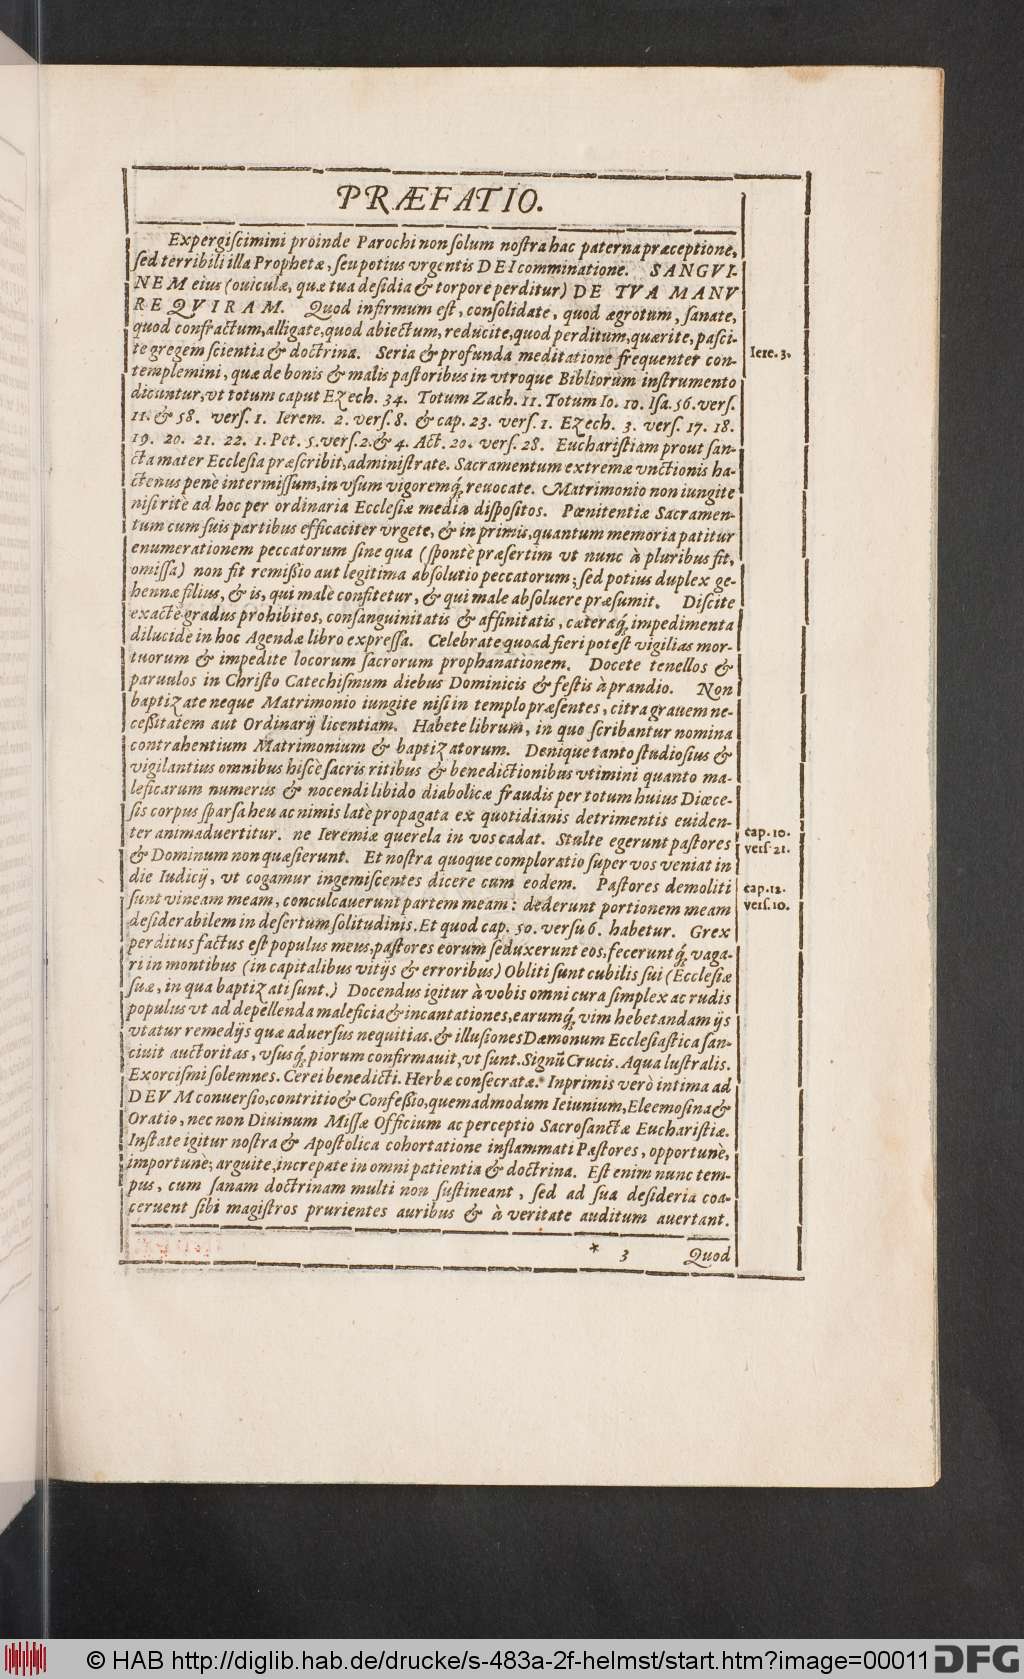 PRÆFATIO.
Expergiscimini proinde Parochi non solum nostra hac paterna præceptione,
sed terribili illa Prophetæ, seu potius vrgentis DEI comminatione. SANGVI-
NEM eius (ouiculæ, quæ tua desidia & torpore perditur) DE TVA MANV
REQVIRAM. Quod infirmum est, consolidate, quod ægrotum, sanate,
quod confractum, alligate, quod abiectum, reducite, quod perditum, quærite, pasci-
te gregem scientia & doctrina. Seria & profunda meditatione frequenter con-
Iere. 3.
templemini, quæ de bonis & malis pastoribus in vtroque Bibliorum instrumento
dicuntur, vt totum caput Ezech. 34. Totum Zach. 11. Totum Io. 10. Isa. 56. vers.
11. & 58. vers. 1. Ierem. 2. vers. 8. & cap. 23. vers. 1. Ezech. 3. vers. 17. 18.
19. 20. 21. 22. 1. Pet. 5. vers. 2. & 4. Act. 20. vers. 28. Eucharistiam prout san-
cta mater Ecclesia præscribit, administrate. Sacramentum extremæ vnctionis ha-
ctenus penè intermissum, in vsum vigoremq́; reuocate. Matrimonio non iungite
nisi ritè ad hoc per ordinaria Ecclesiæ media dispositos. Pœnitentiæ Sacramen-
tum cum suis partibus efficaciter vrgete, & in primis, quantum memoria patitur
enumerationem peccatorum sine qua (spontè præsertim vt nunc à pluribus fit,
omissa) non fit remißio aut legitima absolutio peccatorum; sed potius duplex ge-
hennæ filius, & is, qui malè confitetur, & qui male absoluere præsumit. Discite
exactè gradus prohibitos, consanguinitatis & affinitatis, cæteraq́; impedimenta
dilucidè in hoc Agendæ libro expressa. Celebrate quoad fieri potest vigilias mor-
tuorum & impedite locorum sacrorum prophanationem. Docete tenellos &
paruulos in Christo Catechismum diebus Dominicis & festis à prandio. Non
baptizate neque Matrimonio iungite nisi in templo præsentes, citra grauem ne-
ceßitatem aut Ordinarij licentiam. Habete librum, in quo scribantur nomina
contrahentium Matrimonium & baptizatorum. Denique tanto studiosius &
vigilantius omnibus hisce sacris ritibus & benedictionibus vtimini quanto ma-
leficarum numerus & nocendi libido diabolicæ fraudis per totum huius Diœce-
sis corpus sparsa heu ac nimis latè propagata ex quotidianis detrimentis euiden-
ter animaduertitur. ne Ieremiæ querela in vos cadat. Stulte egerunt pastores
cap. 10.
& Dominum non quæsierunt. Et nostra quoque comploratio super vos veniat in
vers 21.
die Iudicij, vt cogamur ingemiscentes dicere cum eodem. Pastores demoliti
cap. 12.
sunt vineam meam, conculcauerunt partem meam: dederunt portionem meam
vers. 10.
desiderabilem in desertum solitudinis. Et quod cap. 50. versu 6. habetur. Grex
perditus factus est populus meus, pastores eorum seduxerunt eos, fecerunt q́; vaga-
ri in montibus (in capitalibus vitijs & erroribus) Obliti sunt cubilis sui (Ecclesiæ
suæ, in qua baptizati sunt.) Docendus igitur à vobis omni cura simplex ac rudis
populus vt ad depellenda maleficia & incantationes, earumq́; vim hebetandam ijs
vtatur remedijs quæ aduersus nequitias. & illusiones Dæmonum Ecclesiastica san-
ciuit auctoritas, vsusq́; piorum confirmauit, vt sunt. Signū Crucis. Aqua lustralis.
Exorcismi solemnes. Cerei benedicti. Herbæ consecratæ. Inprimis verò intima ad
DEVM conuersio, contritio & Confeßio, quemadmodum Ieiunium, Eleemosina &
Oratio, nec non Diuinum Missæ Officium ac perceptio Sacrosanctæ Eucharistiæ.
Instate igitur nostra & Apostolica cohortatione inflammati Pastores, opportunè,
importunè; arguite, increpate in omni patientia & doctrina. Est enim nunc tem-
pus, cum sanam doctrinam multi non sustineant, sed ad sua desideria coa-
ceruent sibi magistros prurientes auribus & à veritate auditum auertant.
* 3 Quod
© HAB http://diglib.hab.de/drucke/s-483a-2f-helmst/start.htm?image=00011 DFG